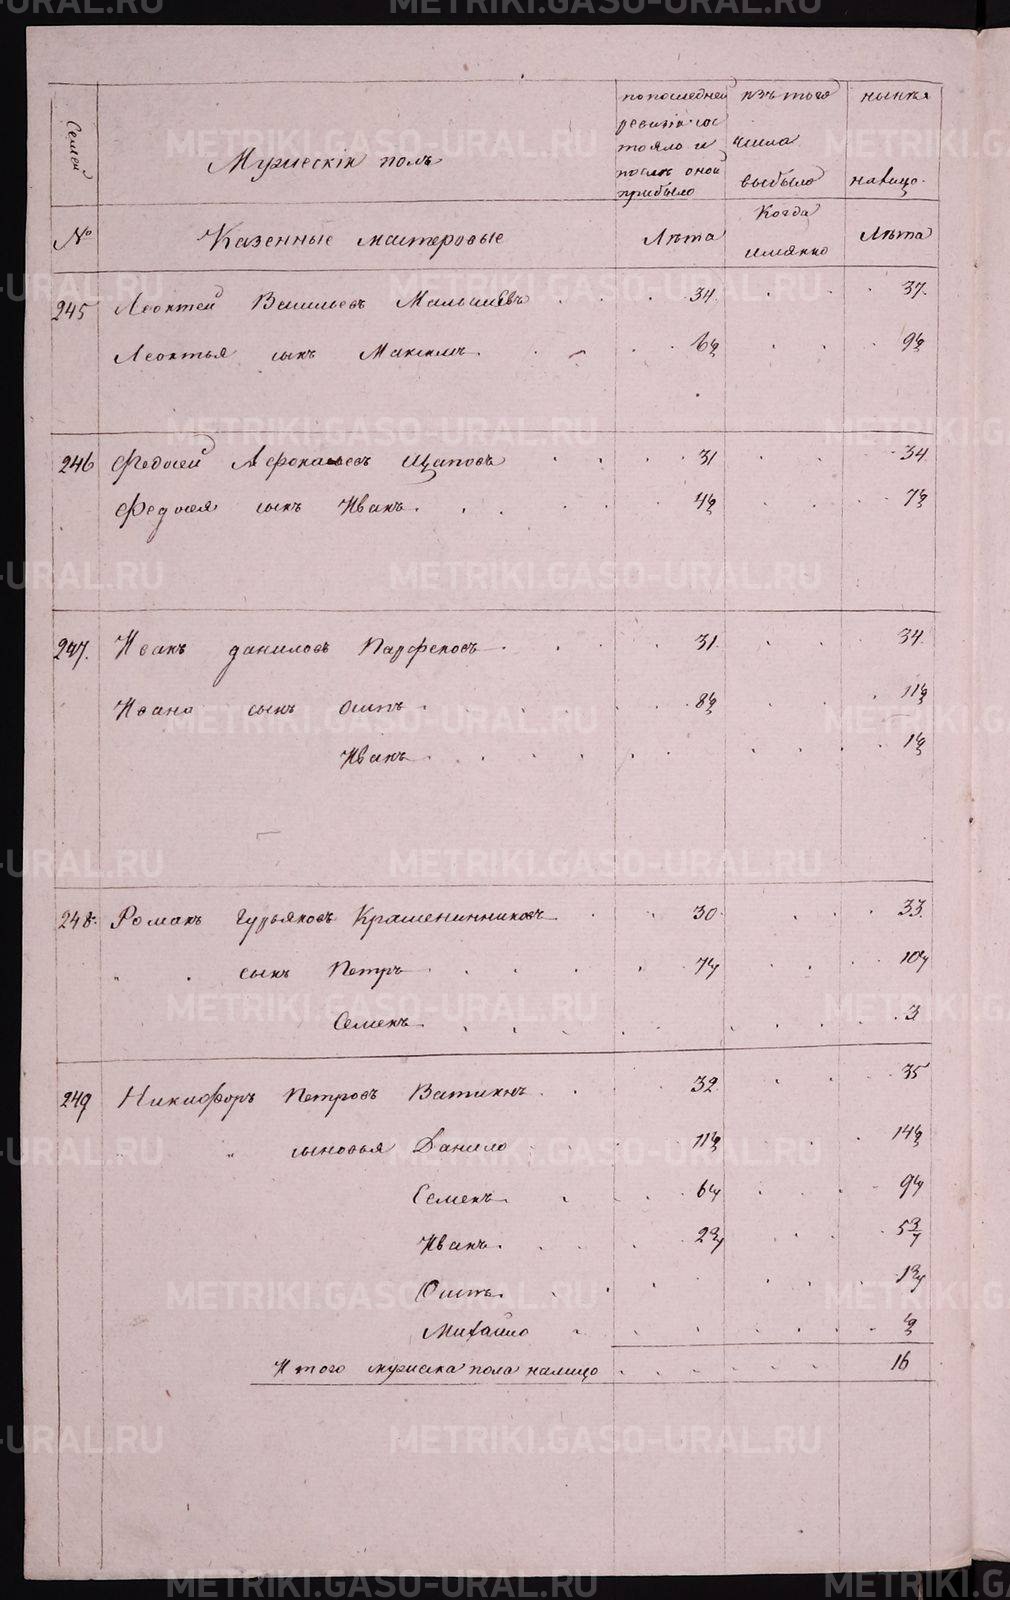 Семей
Мужескiй полъ
по последней
ревизiи сос
тояло и
послѣ оной
прибыло
изъ того
числа
выбыло
нынѣ
налицо.
№
Казенные мастеровые
Лѣта
Когда
имянно
Лѣта
245 Леонтей Васильевъ Малышевъ 34. 37.
Леонтья сынъ Максимъ 6½ 9½
246 Федосей Афонасьевъ Щаповъ 31 34
Федосея сынъ Иванъ 4½ 7½
247. Иванъ Даниловъ Парфеновъ 31. 34
Ивана сынъ Осипъ 8½ 11½
Иванъ 1½
248. Романъ Гурьяновъ Крашенинниковъ 30 33.
" сынъ Петръ 7¼ 10¼
Семенъ 3
249 Никифоръ Петровъ Ватинъ 32 35
" сыновья Данило 11½ 14½
Семенъ 6¼ 9¼
Иванъ 2¾ 5¾
Осипъ 1¾
Михайло ½
Итого мужеска пола налицо 16
METRIKI.GASO-URAL.RU